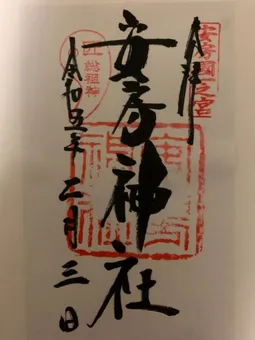 奉拝
安房國一之宮
安房神社
総祖神
令和五年二月三日